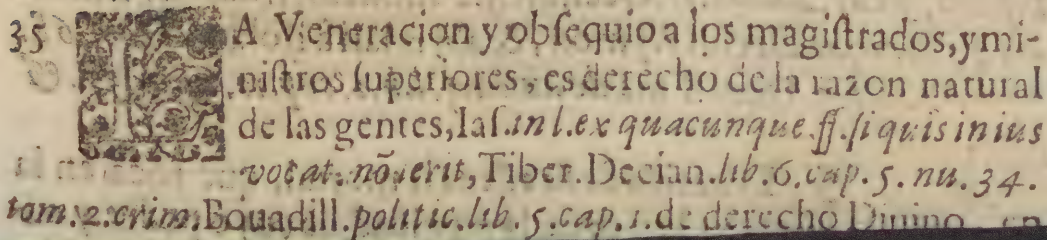 35 LA Veneracion y obſequio a los magiſtrados, y mi-
niſtros ſuperiores, es derecho de la razon natural
de las gentes, Iaſ. in l. ex quacunque. ff. ſi quis in ius
vocat. nõ ierit, Tiber. Decian. lib. 6. cap. 5. nu. 34.
tom. 2. crim. Bouadill. politic. lib. 5. cap. 1. de derecho Diuino en